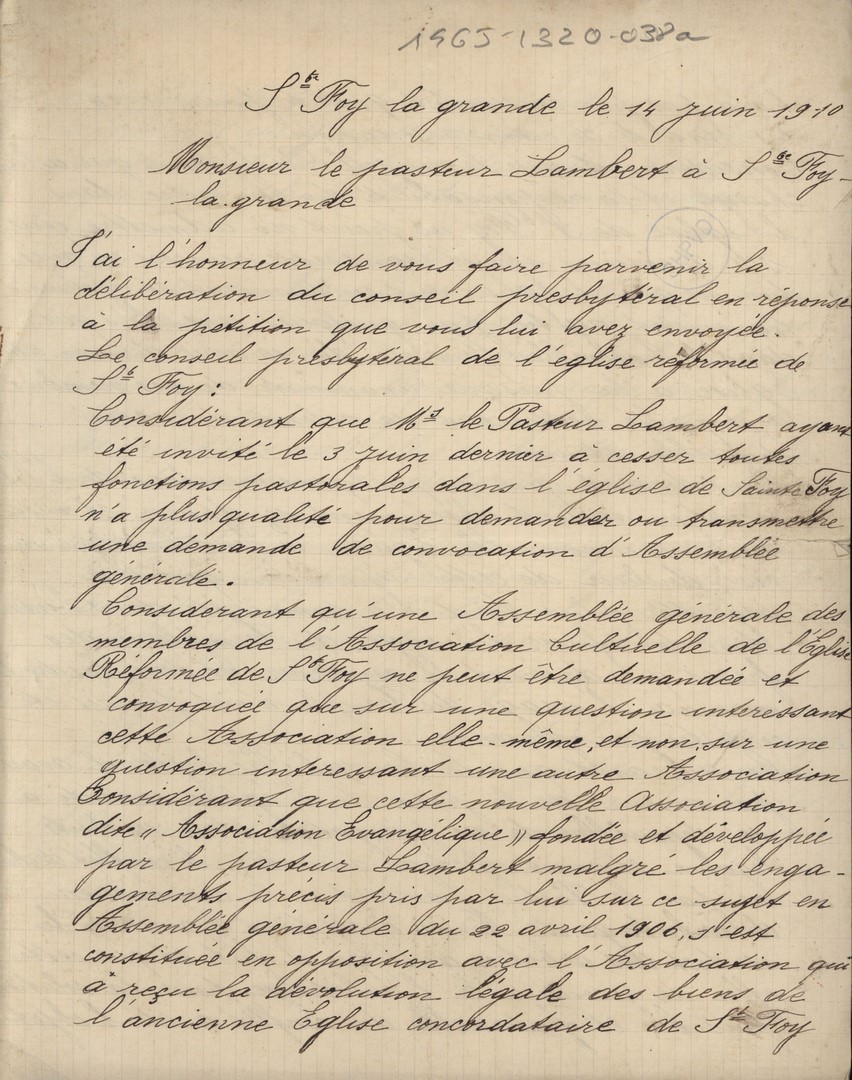 1965-1320-038a
Ste Foy la grande le 14 juin 1910
Monsieur le pasteur Lambert à Ste Foy-
la-grande
J'ai l'honneur de vous faire parvenir la
délibération du conseil presbytéral en réponse
à la pétition que vous lui avez envoyée.
Le conseil presbytéral de l'église réformée de
Ste Foy :
Considérant que Mr le Pasteur Lambert ayant
été invité le 3 juin dernier à cesser toutes
fonctions pastorales dans l'église de Sainte Foy
n'a plus qualité pour demander ou transmettre
une demande de convocation d'Assemblée
générale.
Considerant qu'une Assemblée générale des
membres de l'Association Cultuelle de l'Eglise
Réformée de Ste Foy ne peut être demandée et
convoquée que sur une question intéressant
cette Association elle-même, et non, sur une
question interessant une autre Association
Considérant que cette nouvelle Association
dite « Association Evangélique » fondée et développée
par le pasteur Lambert malgré les enga-
gements précis pris par lui sur ce sujet en
Assemblée générale du 22 avril 1906, s'est
constituée en opposition avec l'Association qui
à reçu la dévolution légale des biens de
l'ancienne Eglise concordataire de Ste Foy